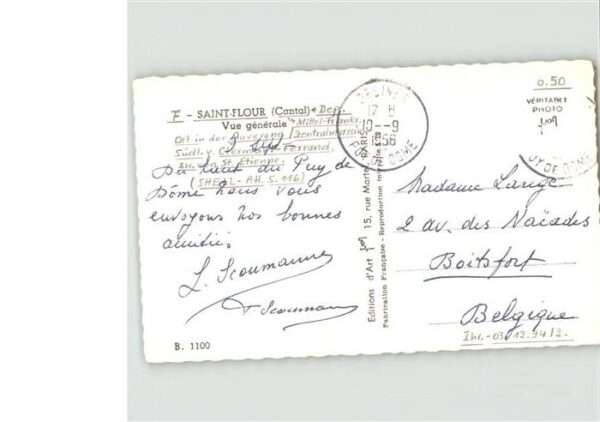 F - SAINT-FLOUR (Cantal) Dep.
Vue générale Mittel-Frankr.
Ort in der Auvergne Zentralmassiv
Südl. v. Clermont-Ferrand,
St. Etienne.
(SHELL-AH. S. 116)
Du haut du Puy de
Dôme nous vous
envoyons nos bonnes
amitiés
L. Scoumanne
Scouman
B. 1100
Editions d'Art yvon 15, rue Martel, PARIS
Fabrication Française - Reproduction interdite
17 H
10-9
DOME
0.50
VÉRITABLE
PHOTO
yvon
UY DE DOME
Madame Lange
2 av. des Naïades
Boitsfort
Belgique